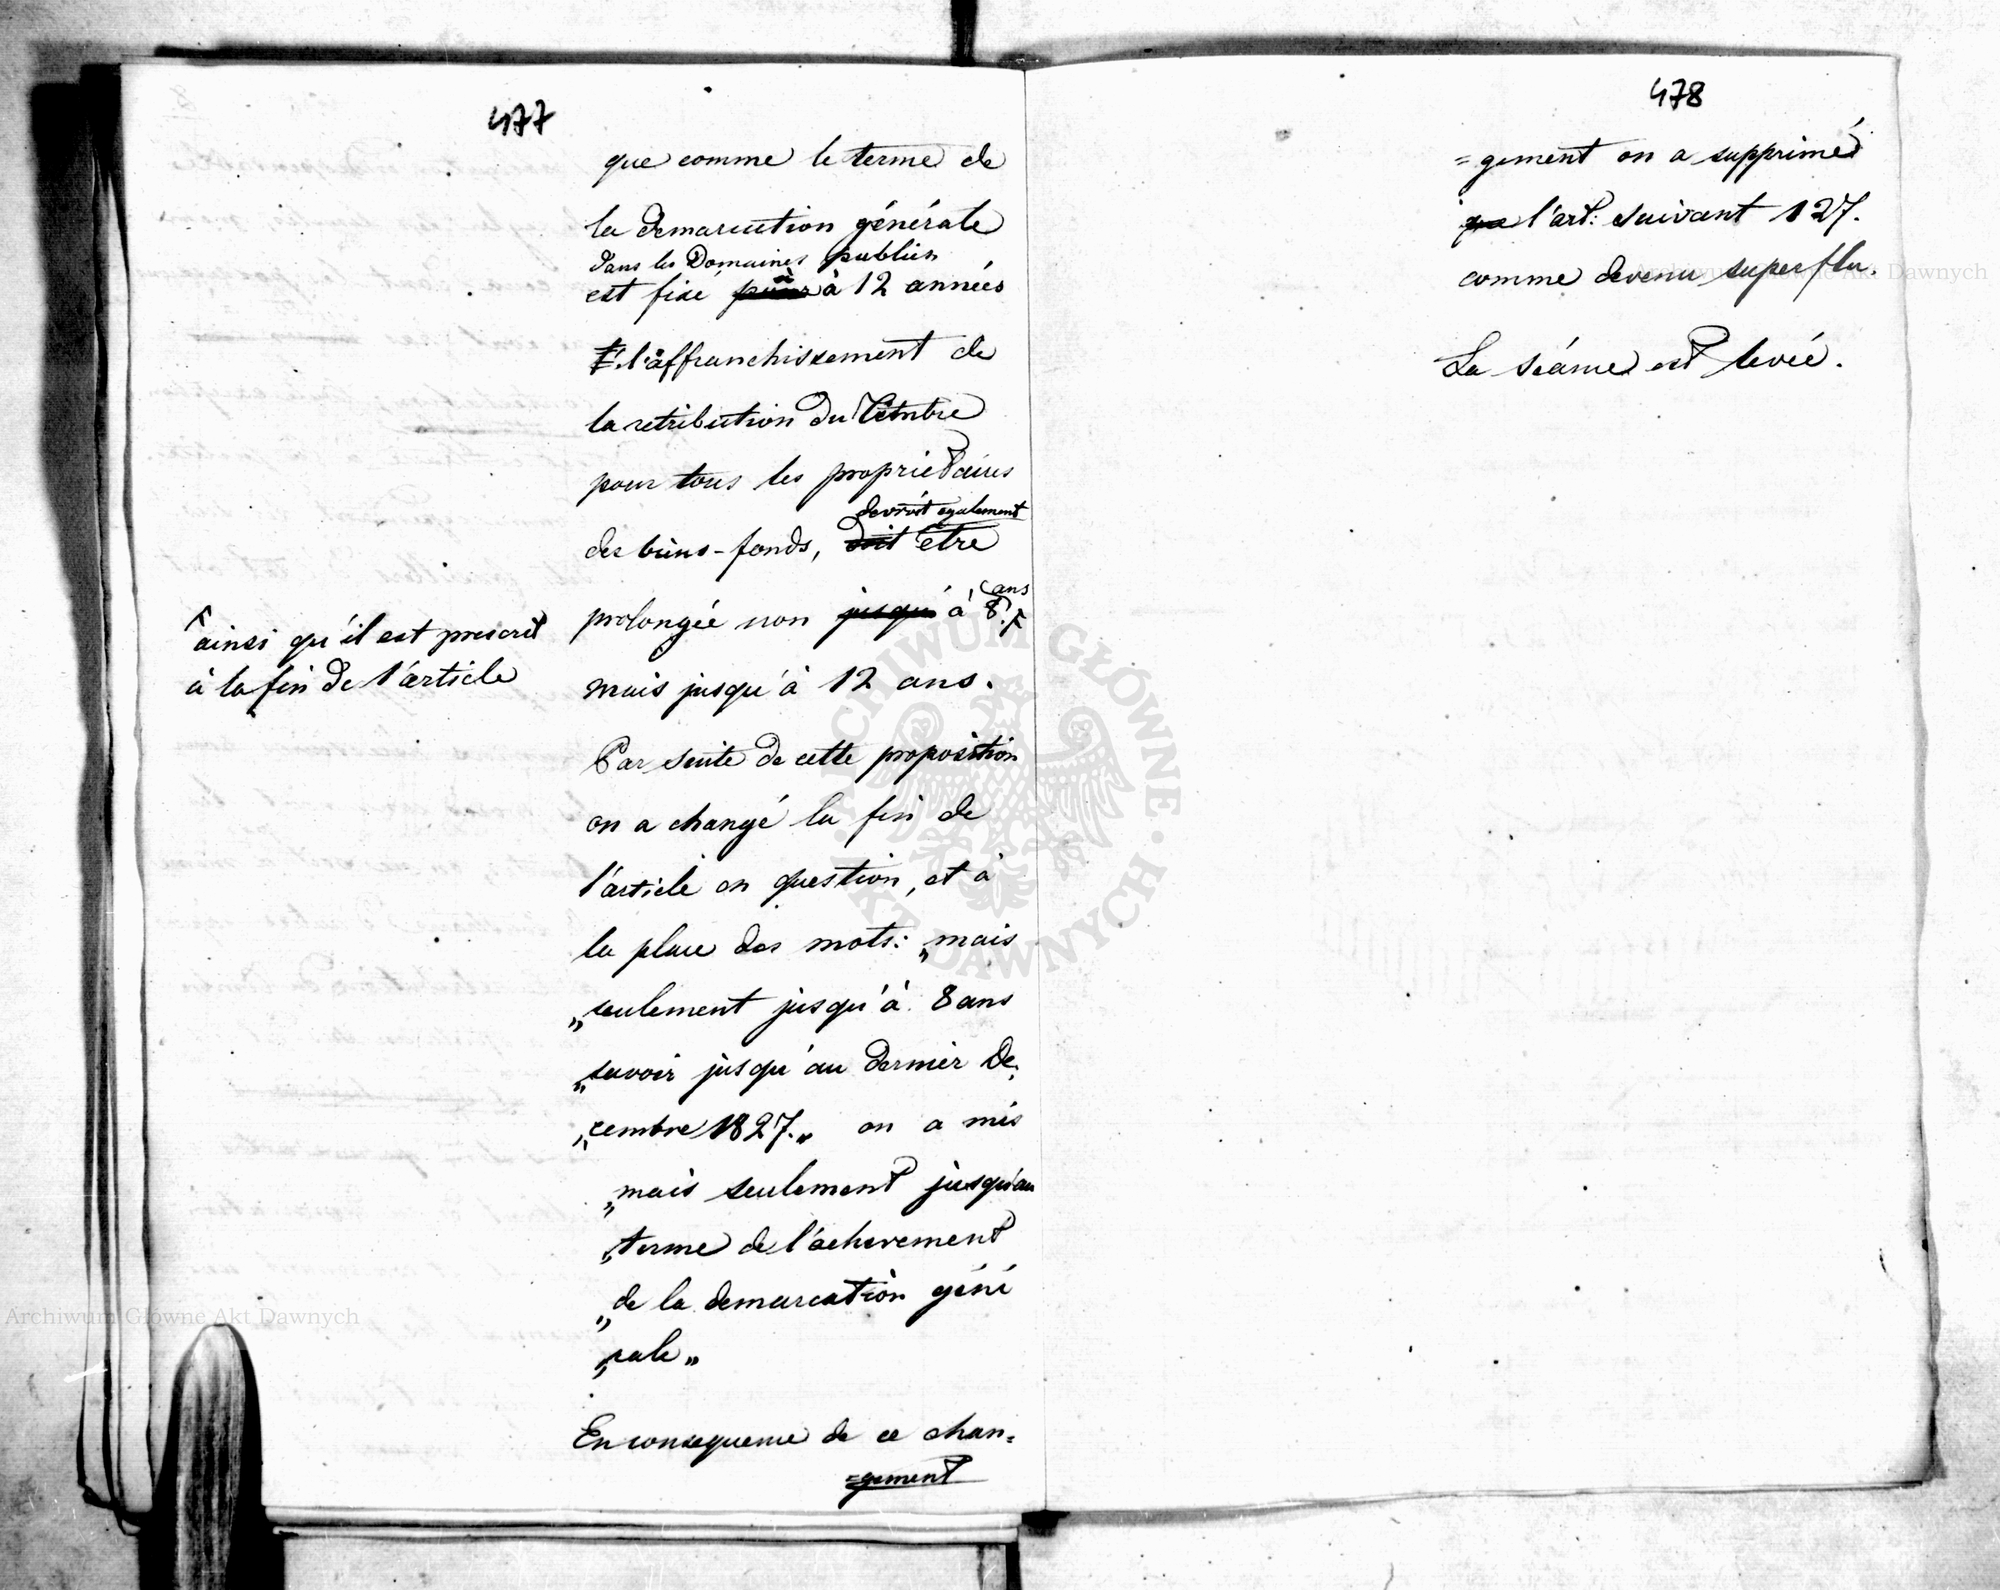 477
que comme le terme de
la demarcation générale
dans les Domaines publics
est fixé pour à 12 années
l'affranchissement de
la retribution du Timbre
pour tous les proprietaires
devroit egalement
des biens-fonds, doit être
ans
prolongée non jusqu' à 8.
ainsi qu'il est prescrit
à la fin de l'article
mais jusqu'à 12 ans.
Par suite de cette proposition
on a changé la fin de
l'article en question, et à
la place des mots: „mais
„seulement jusqu'à 8 ans
„savoir jusqu'au dernier De:
„cembre 1827.„ on a mis
„mais seulement jusqu'au
„terme de l'achevement
„de la demarcation géné
„rale„
En consequence de ce chan=
=gement
478
=gement on a supprimé
que l'art: suivant 127.
comme devenu superflu.
La séance est levée.
ARCHIWUM GŁÓWNE · AKT DAWNYCH ·
Archiwum Główne Akt Dawnych
Archiwum Główne Akt Dawnych